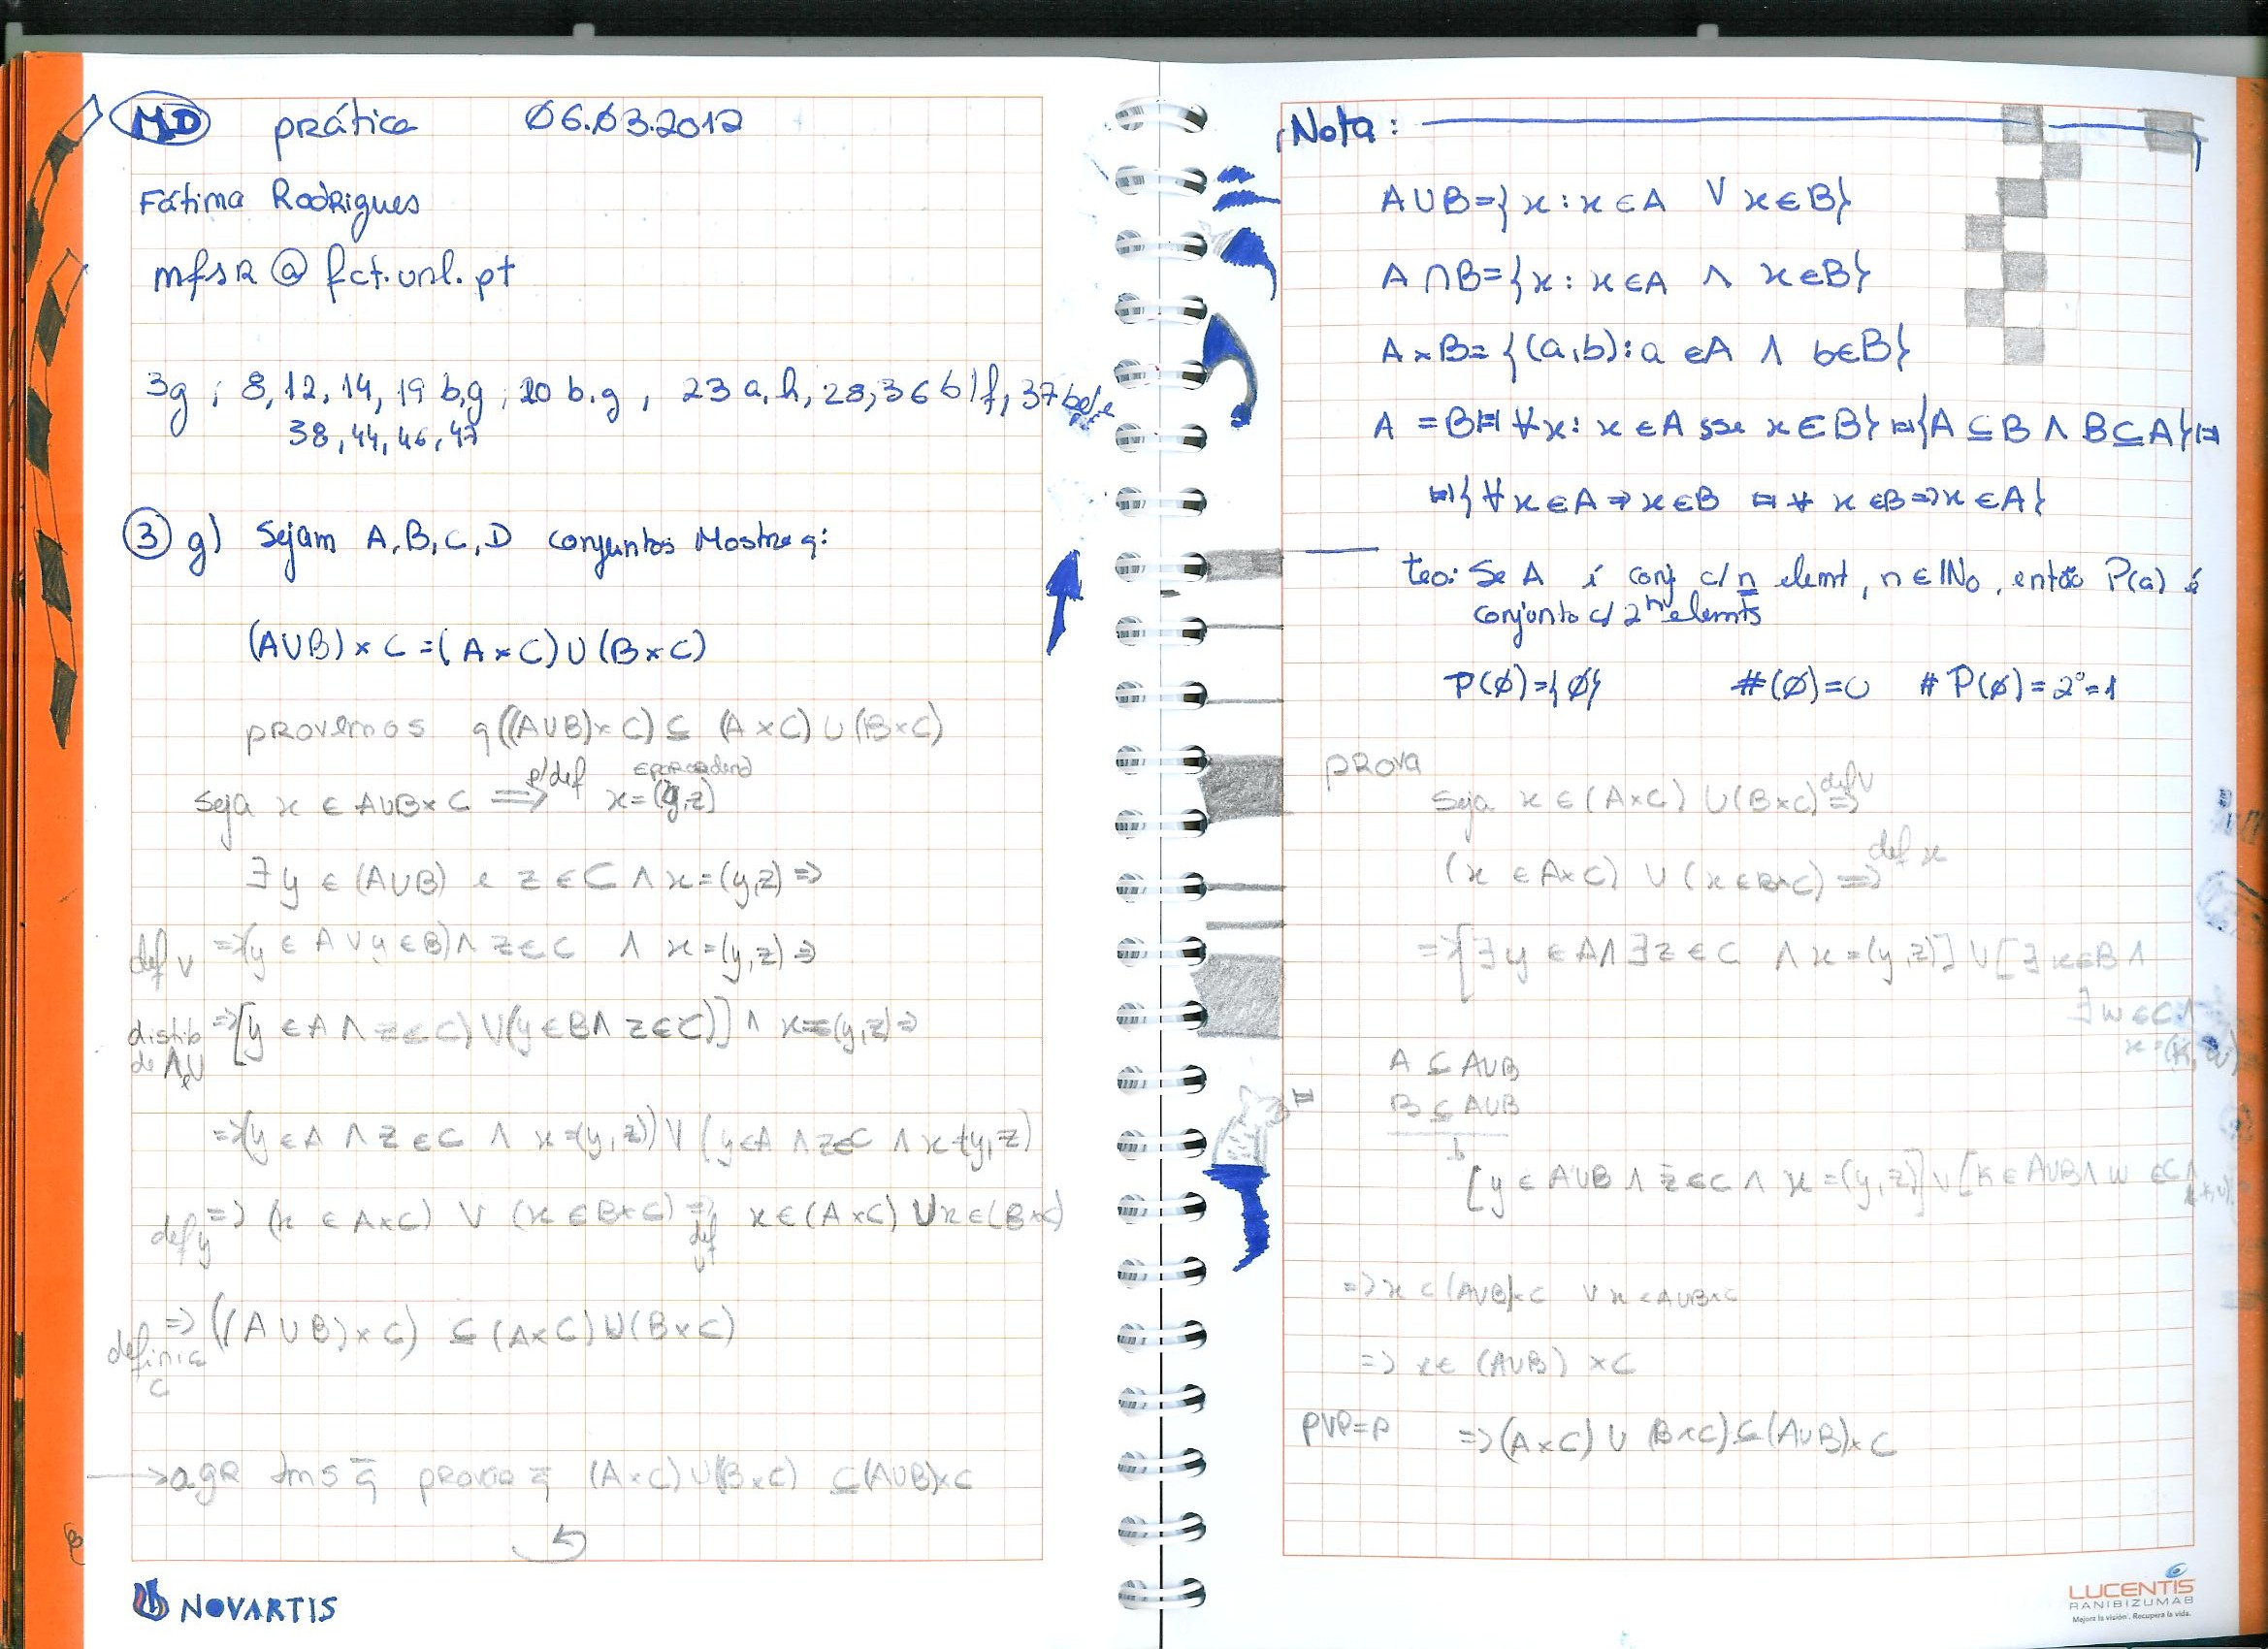 MD prática 06.03.2012
Fátima Rodrigues
mfsr @ fct.unl.pt
3g ; 8, 12, 14, 19 b,g ; 20 b.g , 23 a, h, 28, 36 b/f, 37
38, 44, 46, 47
③ g) Sejam A, B, C, D conjuntos Mostre q:
(A∪B) × C = (A × C) ∪ (B × C)
provemos q ((A∪B)×C) ⊆ (A × C) ∪ (B×C)
p/ def
Seja x ∈ A∪B×C ⟹ x = (y,z)
∃ y ∈ (A∪B) e z ∈ C ∧ x = (y,z) ⇒
def ∨ ⇒ (y ∈ A ∨ y ∈ B) ∧ z ∈ C ∧ x = (y,z) ⇒
distib de ∧ e U ⇒ [y ∈ A ∧ z ∈ C) ∨ (y ∈ B ∧ z ∈ C)] ∧ x = (y,z) ⇒
⇒ (y ∈ A ∧ z ∈ C ∧ x = (y,z)) ∨ (y ∈ A ∧ z ∈ C ∧ x = (y,z)
def y ⇒ (x ∈ A×C) ∨ (x ∈ B×C) ⇒ def U x ∈ (A×C) ∪ x ∈ (B×C)
⇒ ((A ∪ B) × C) ⊆ (A×C) ∪ (B×C)
→ agr tms q̄ provar q̄ (A×C) ∪ (B×C) ⊆ (A∪B)×C
NOVARTIS
Nota :
A∪B = { x : x ∈ A ∨ x ∈ B}
A ∩ B = { x : x ∈ A ∧ x ∈ B}
A × B = { (a,b) : a ∈ A ∧ b ∈ B}
A = B ⇔ ∀x : x ∈ A sse x ∈ B} ⇔ {A ⊆ B ∧ B ⊆ A} ⇔
⇔ { ∀ x ∈ A ⇒ x ∈ B ⇔ ∀ x ∈ B ⇒ x ∈ A}
teo: Se A é conj c/ n elemt, n ∈ ℕ₀, então P(a) é
conjunto c/ 2ⁿ elemts
P(∅) = {∅} #(∅) = 0 # P(∅) = 2⁰ = 1
prova
Seja x ∈ (A×C) ∪ (B×C) ⇒ def U
(x ∈ A×C) ∪ (x ∈ B×C) ⇒ def x
⇒ [∃ y ∈ A ∧ ∃ z ∈ C ∧ x = (y,z)] ∪ [∃ k ∈ B ∧
∃ w ∈ C ∧
x = (k, w)
A ⊆ A∪B
B ⊆ A∪B
[y ∈ A∪B ∧ z ∈ C ∧ x = (y,z)] ∨ [k ∈ A∪B ∧ w ∈ C ∧
⇒ x ∈ (A∪B)×C ∨ x ∈ A∪B×C
⇒ x ∈ (A∪B) × C
p∨p=p ⇒ (A×C) ∪ (B×C) ⊆ (A∪B)×C
LUCENTIS
RANIBIZUMAB
Mejora la visión. Recupera la vida.